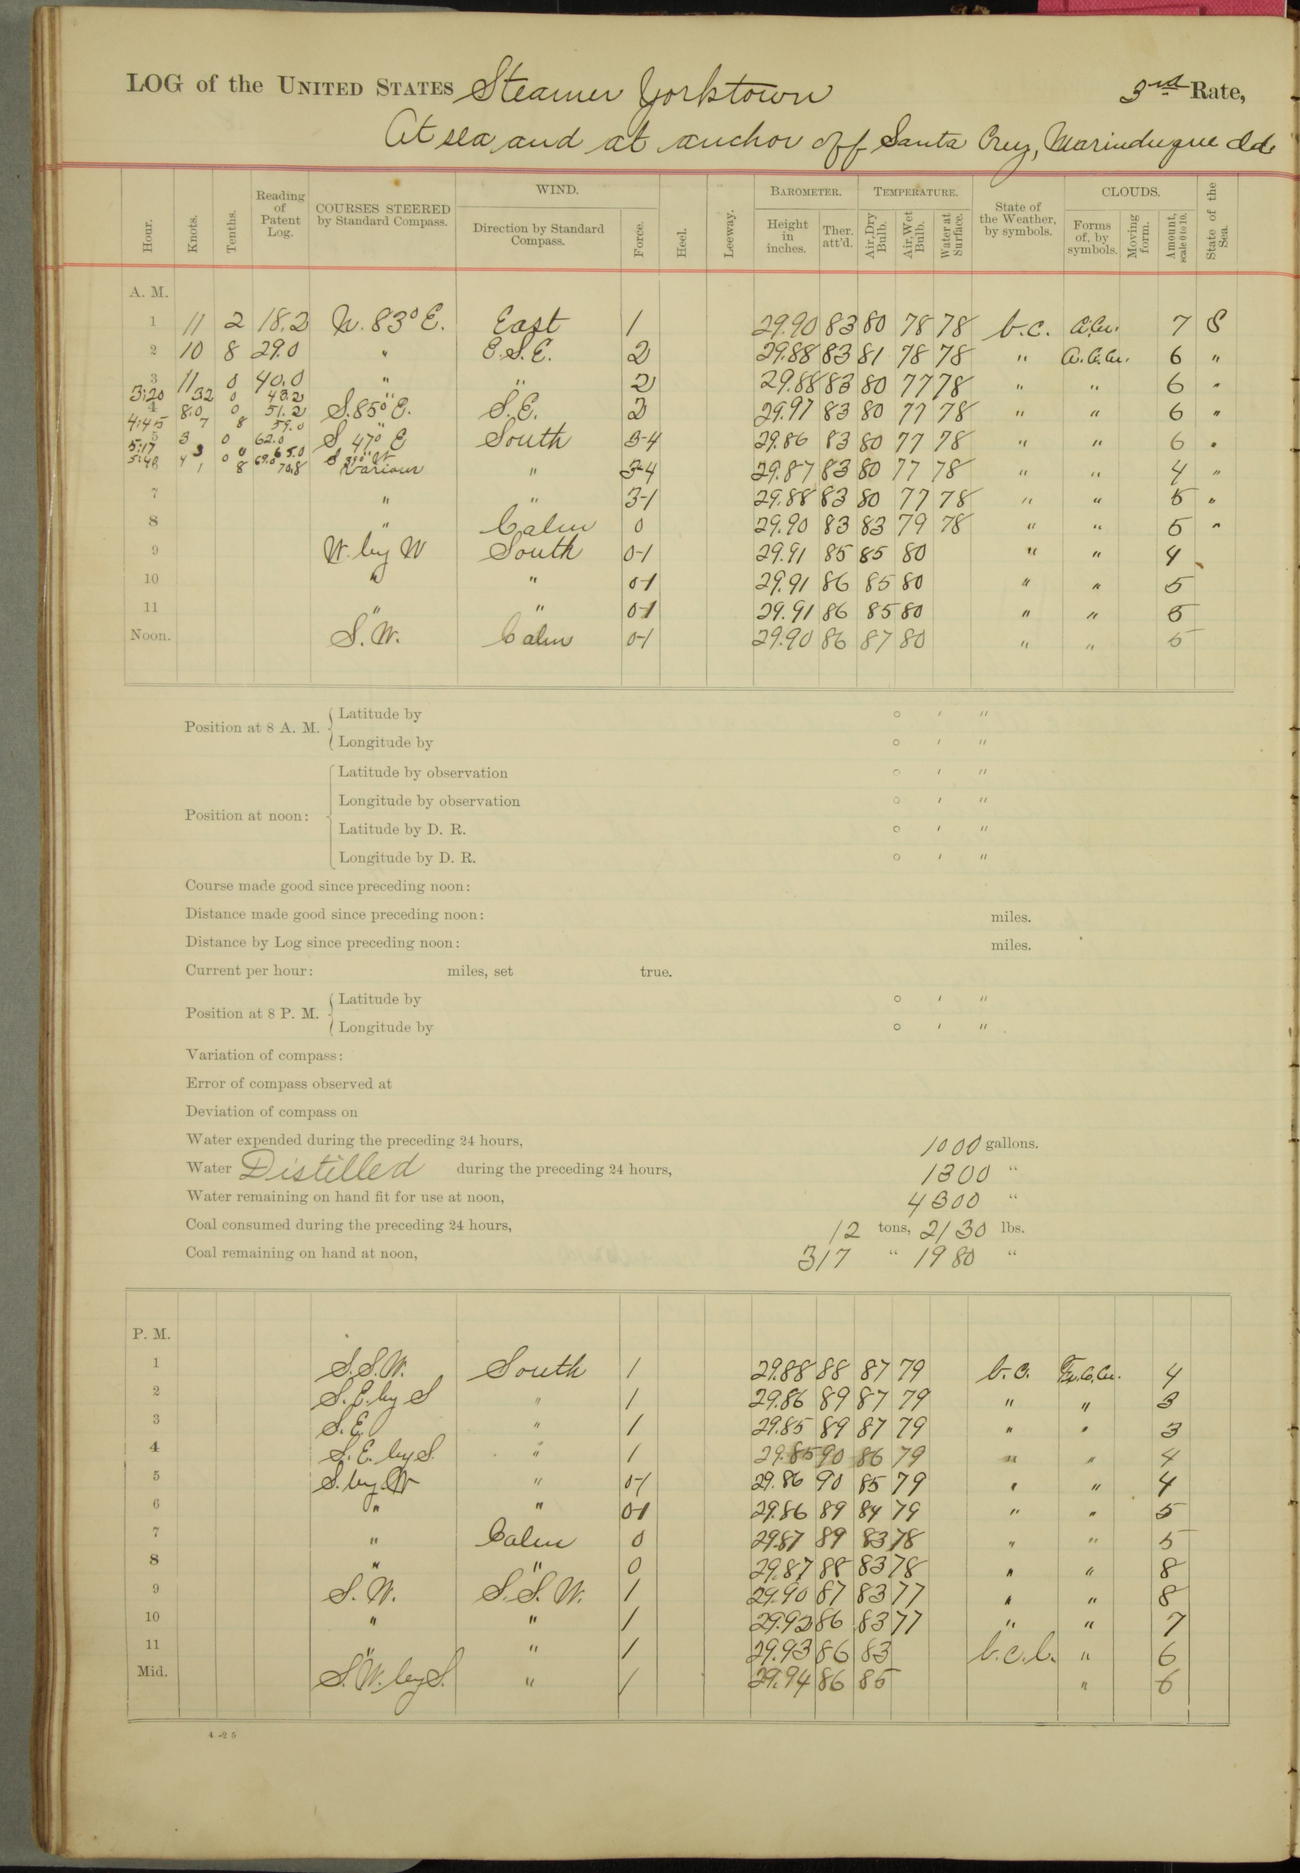 LOG of the UNITED STATES Steamer Yorktown 3rd Rate,
At sea and at anchor off Santa Cruz, Marinduque Id.
Hour. Knots. Tenths. Reading of Patent Log. COURSES STEERED by Standard Compass. WIND. Direction by Standard Compass. Force. Heel. Leeway. BAROMETER. Height in inches. Ther. att'd. TEMPERATURE. Air, Dry Bulb. Air, Wet Bulb. Water at Surface. State of the Weather, by symbols. CLOUDS. Forms of, by symbols. Moving form. Amount, scale 0 to 10. State of the Sea.
A. M.
1 11 2 18.2 N. 83° E. East 1 29.90 83 80 78 78 b.c. 7 S
2 10 8 29.0 " E.S.E. 2 29.88 83 81 78 78 " 6 "
3 11 0 40.0 " " 2 29.88 83 80 77 78 " " 6 "
3:20 32 0 43.2
4 8.0 0 51.2 S. 85° E. S.E. 2 29.87 83 80 77 78 " " 6 "
4:45 7 8 59.0 "
5 3 0 62.0 S 47° E South 3-4 29.86 83 80 77 78 " " 6 "
5:17 3 0 65.0
4 0 69.0
5:48 1 8 70.8 Various " 3-4 29.87 83 80 77 78 " " 4 "
7 " " 3-1 29.88 83 80 77 78 " " 5 "
8 " Calm 0 29.90 83 83 79 78 " " 5 "
9 W. by W South 0-1 29.91 85 85 80 " " 4
10 " " 0-1 29.91 86 85 80 " " 5
11 " " 0-1 29.91 86 85 80 " " 5
Noon. S.W. Calm 0-1 29.90 86 87 80 " " 5
Position at 8 A. M. Latitude by ° ′ ″
Longitude by ° ′ ″
Position at noon: Latitude by observation ° ′ ″
Longitude by observation ° ′ ″
Latitude by D. R. ° ′ ″
Longitude by D. R. ° ′ ″
Course made good since preceding noon:
Distance made good since preceding noon: miles.
Distance by Log since preceding noon: miles.
Current per hour: miles, set true.
Position at 8 P. M. Latitude by ° ′ ″
Longitude by ° ′ ″
Variation of compass:
Error of compass observed at
Deviation of compass on
Water expended during the preceding 24 hours, 1000 gallons.
Water Distilled during the preceding 24 hours, 1300 "
Water remaining on hand fit for use at noon, 4300 "
Coal consumed during the preceding 24 hours, 12 tons, 2130 lbs.
Coal remaining on hand at noon, 317 " 1980 "
P. M.
1 S.S.W. South 1 29.88 88 87 79 b.c. 4
2 S.E. by S " 1 29.86 89 87 79 " " 3
3 S.E. " 1 29.85 89 87 79 " " 3
4 S.E. by S. " 1 29.85 90 86 79 " " 4
5 S. by W " 0-1 29.86 90 85 79 " " 4
6 " " 0-1 29.86 89 84 79 " " 5
7 " Calm 0 29.87 89 83 78 " " 5
8 " " 0 29.87 88 83 78 " " 8
9 S.W. S.S.W. 1 29.90 87 83 77 " " 8
10 " " 1 29.92 86 83 77 " " 7
11 " " 1 29.93 86 83 b.c.l. " 6
Mid. S.W. by S. " 1 29.94 86 85 " 6
4-25